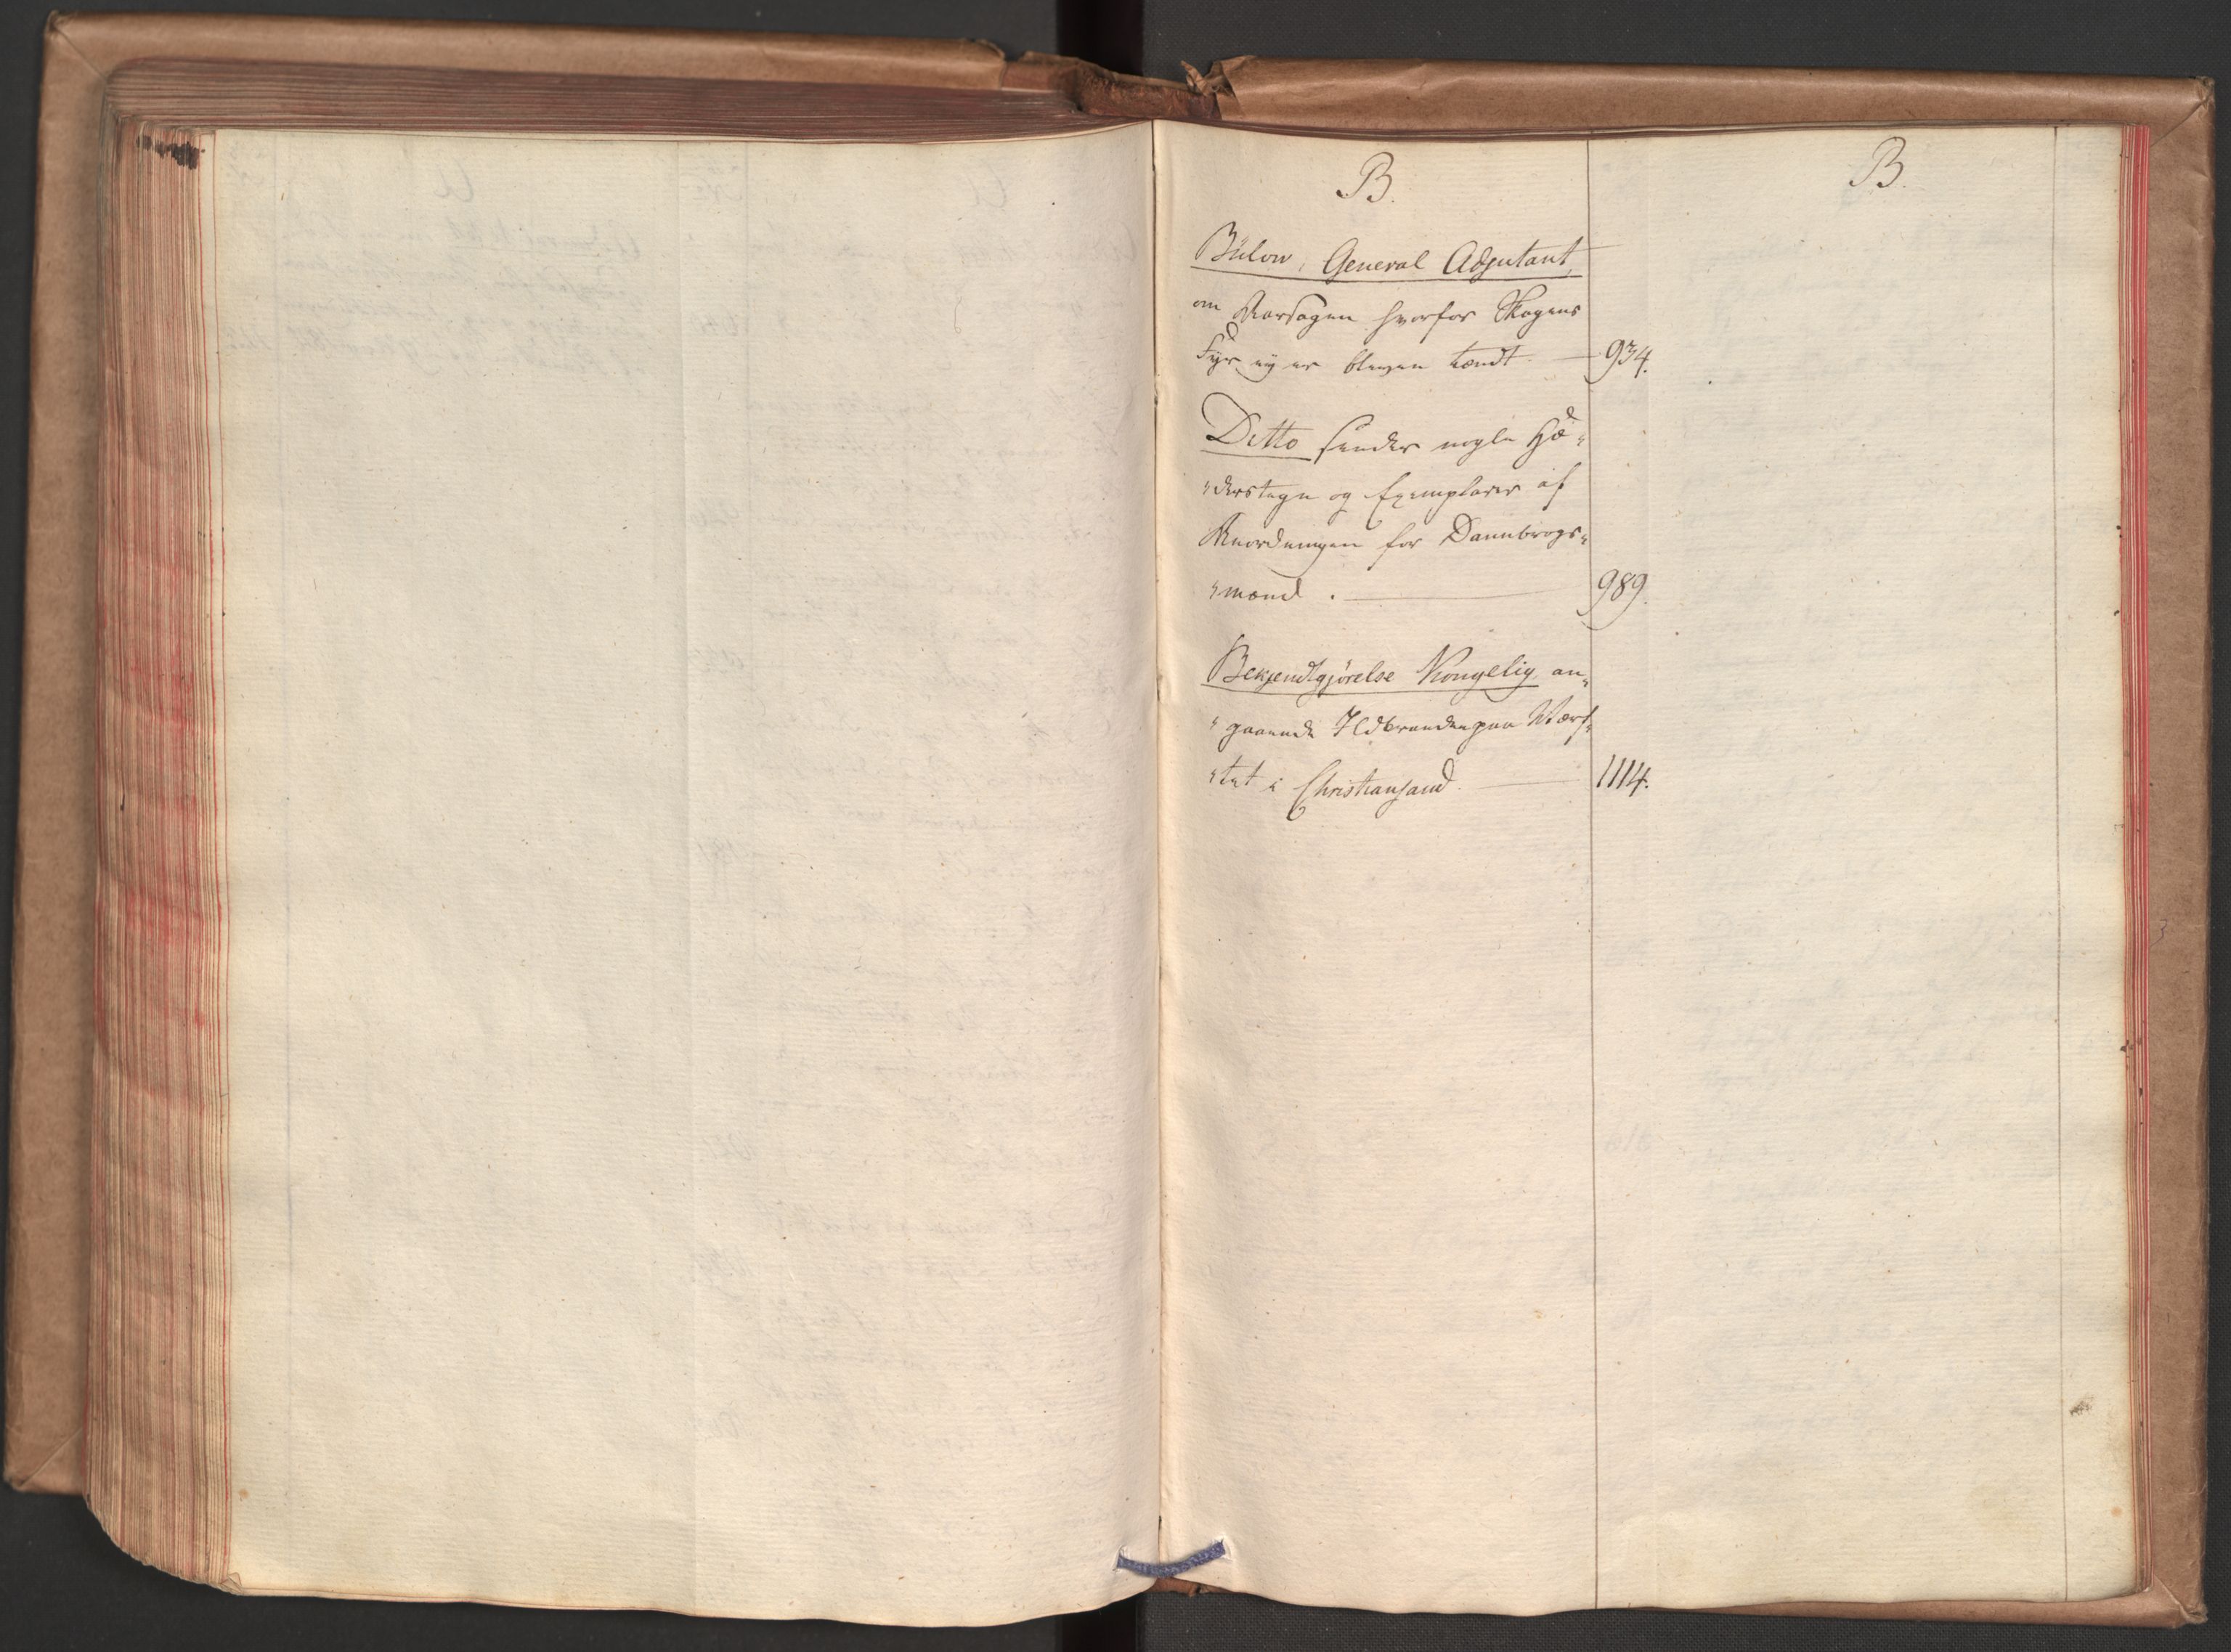 B.
B.
Bülow, General Adjutant,
om Aarsagen hvorfor Skagens
Fyr ey er bleven tændt — 934.
Ditto sender nogle Hæ-
"derstegn og Exemplarer af
Anordningen for Dannbrogs-
"mænd. — 989.
Bekjendtgjörelse Kongelig an-
"gaaende Ildbranden paa Værf-
"tet i Christiansand. — 1114.